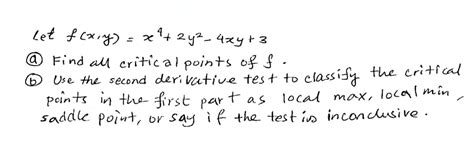 Let f(x,y) = x⁴ + 2y² - 4xy + 3
ⓐ Find all critical points of f.
ⓑ Use the second derivative test to classify the critical
points in the first part as local max, local min,
saddle point, or say if the test is inconclusive.